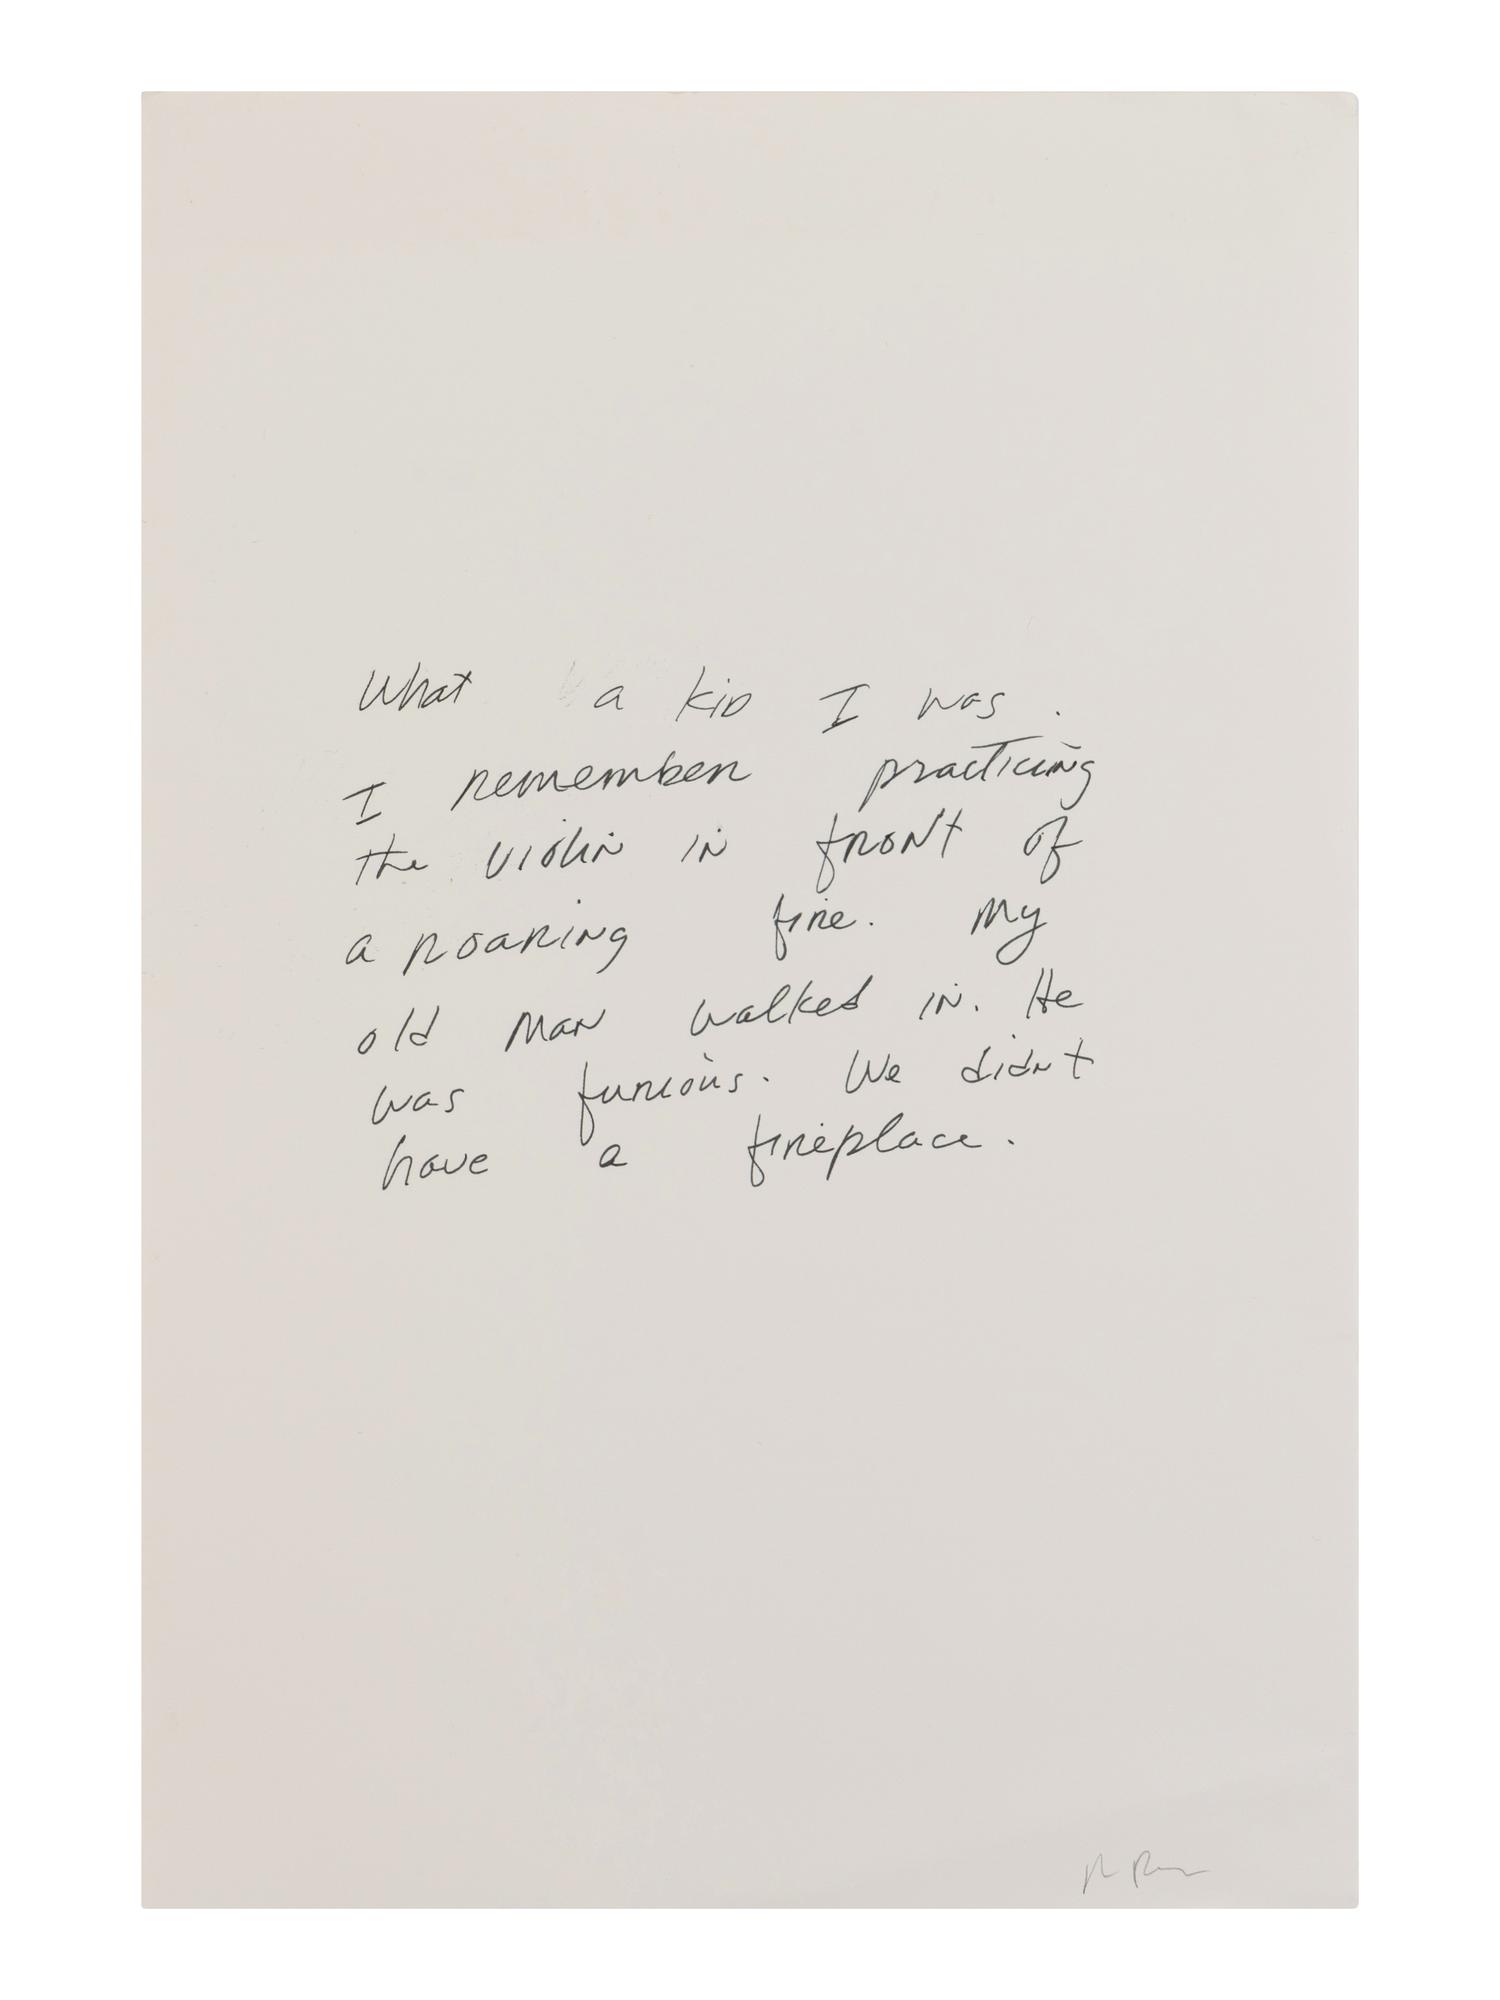 What a kid I was.
I remember practicing
the violin in front of
a roaring fire. My
old man walked in. He
was furious. We didnt
have a fireplace.